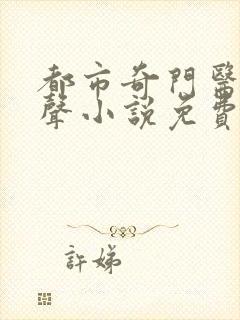 都市奇門醫
聲小說免費
許娣